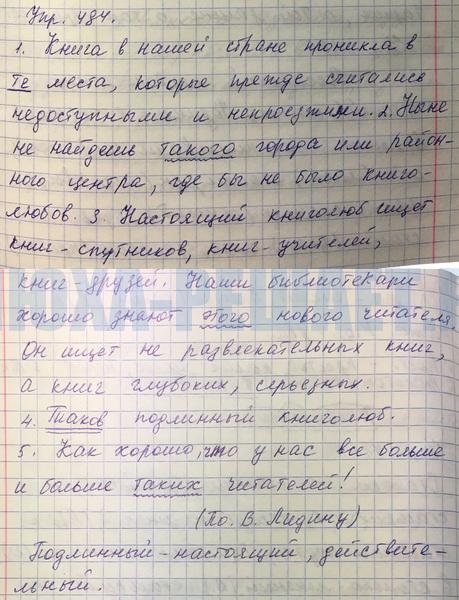 Упр. 484.
1. Книга в нашей стране проникла в
те места, которые прежде считались
недоступными и непроезжими. 2. Ныне
не найдешь такого города или район-
ного центра, где бы не было книго-
любов. 3. Настоящий книголюб ищет
книг-спутников, книг-учителей,
книг-друзей. Наши библиотекари
хорошо знают этого нового читателя.
Он ищет не развлекательных книг,
а книг глубоких, серьезных.
4. Таков подлинный книголюб.
5. Как хорошо, что у нас все больше
и больше таких читателей!
(По В. Лидину)
Подлинный-настоящий, действите-
льный.